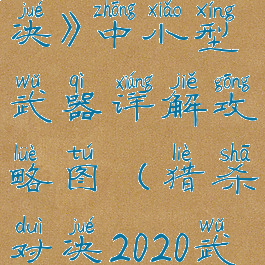 jué zhōng xiǎo xíng
决》中小型
wǔ qì xiáng jiě gōng
武器详解攻
lüè tú liè shā
略图（猎杀
duì jué wǔ
对决2020武